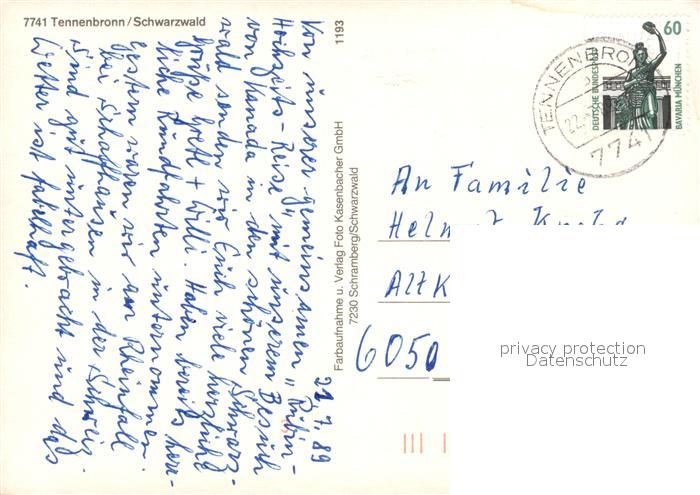 7741 Tennenbronn / Schwarzwald
21.7.89
Von unserer gemeinsamen "Rubin-
Hochzeits-Reise" mit unserem Besuch
von Kanada in den schönen Schwarz-
wald senden wir Euch viele herzliche
Grüße Gretl + Willi. Haben bereits herr-
liche Rundfahrten unternommen.
Gestern waren wir am Rheinfall
bei Schaffhausen in der Schweiz.
Sind gut untergebracht und das
Wetter ist fabelhaft.
1193
Farbaufnahme u. Verlag Foto Kasenbacher GmbH
7230 Schramberg/Schwarzwald
60
DEUTSCHE BUNDESPOST
BAVARIA MÜNCHEN
TENNENBRONN
22.
7741
An Familie
Helmut
Altk
6050
privacy protection
Datenschutz